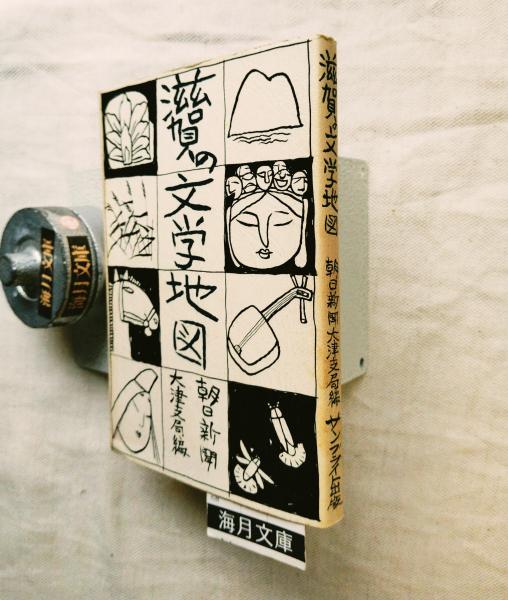 滋賀の文学地図
朝日新聞
大津支局編
滋賀の文学地図
朝日新聞大津支局編
サンブライト出版
海月文庫
海月文庫
海月文庫